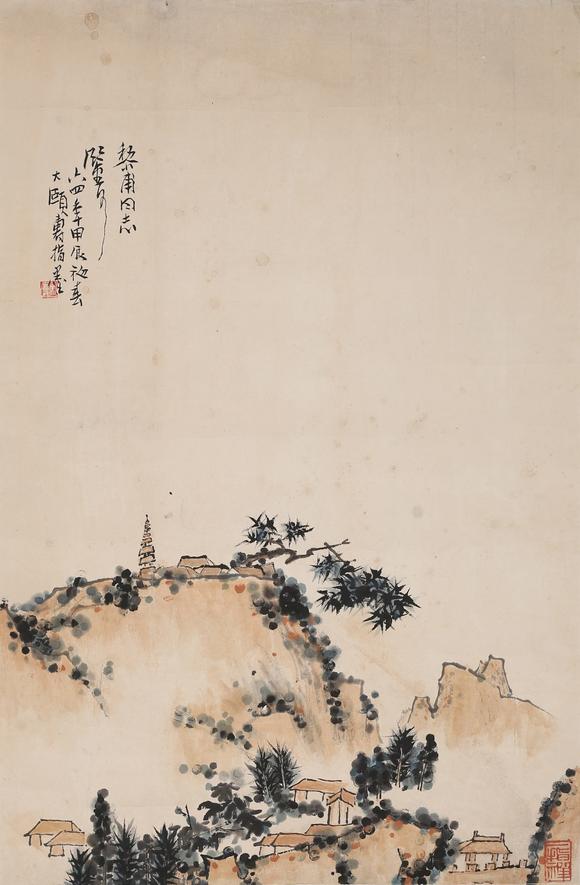 黎甫同志
鑒可
六四年甲辰初春
大頤壽指墨